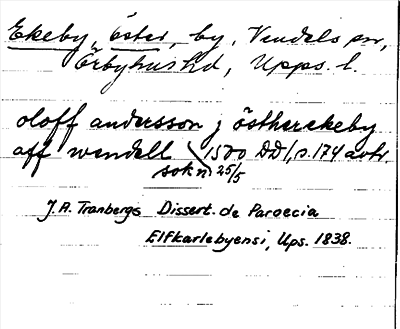 Ekeby, Öster, by, Vendels sn,
Örbyhus hd, Upps. l.
oloff andersson j östherekeby
aff wendell 1500 DD/, s. 174 avtr.
sokn 25/5
J. A. Tranbergs Dissert. de Paroecia
Elfkarlebyensi, Ups. 1838.